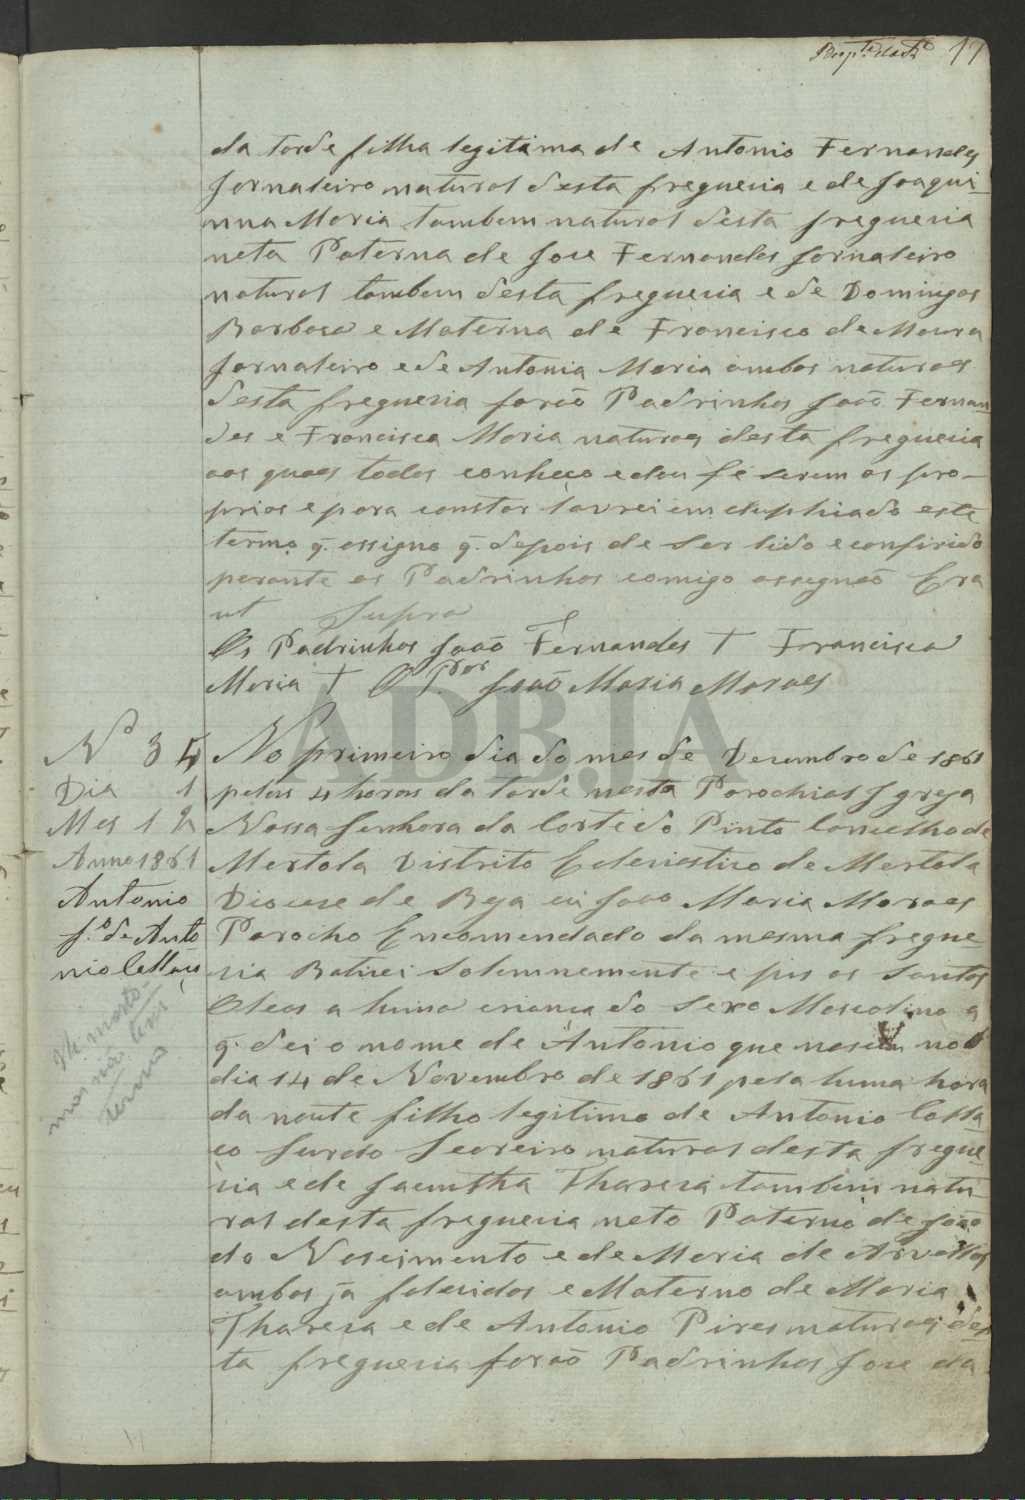 17
da tarde filha legitima de Antonio Fernandes
Jornaleiro natural desta freguesia e de Joaqui-
nna Maria tambem natural desta freguesia
neta Paterna de Jose Fernandes Jornaleiro
natural tambem desta freguesia e de Domingas
Barbosa e Materna de Francisco de Moura
Jornaleiro e de Antonia Maria ambos naturaes
desta freguesia forão Padrinhos João Fernan-
des e Francisca Maria naturaes desta freguesia
aos quaes todos conheço e dou fé serem os pro-
prios e para constar lavrei em duplicado este
termo q. assigno q. depois de ser lido e confirido
perante os Padrinhos comigo assignão Era
ut Supra
Os Padrinhos João Fernandes † Francisca
Maria † O João Maria Moraes
ADBJA
Nº 34
Dia 1
Mes 12
Anno 1861
Antonio
f.º de Anto
nio Collaço
No primeiro dia do mes de Dezembro de 1861
pelas 4 horas da tarde nesta Parochial Igreja
Nossa Senhora da Corte do Pinto Concelho de
Mertola Distrito Eclesiastico de Mertola
Diocese de Beja eu João Maria Moraes
Parocho Encomendado da mesma fregue-
sia Batizei Solemnemente e pus os Santos
Oleos a huma criança do Sexo Mascolino a
q. dei o nome de Antonio que nasceu no
dia 14 de Novembro de 1861 pela huma hora
da noute filho legitimo de Antonio Colla
ço Surdo Seareiro natural desta fregue-
sia e de Jacintha Tharesa tambem natu-
ral desta freguesia neto Paterno de João
do Nascimento e de Maria de
ambos já falecidos e Materno de Maria
Tharesa e de Antonio Pires naturaes des
ta freguesia forão Padrinhos Jose da